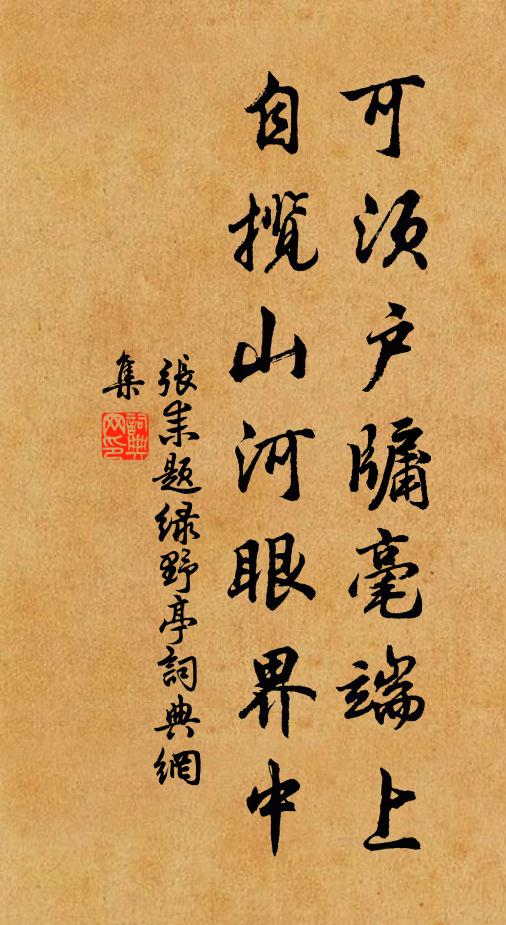 可须户牖毫端上
自揽山河眼界中
張耒题绿野亭詞典網
集
詞典网印